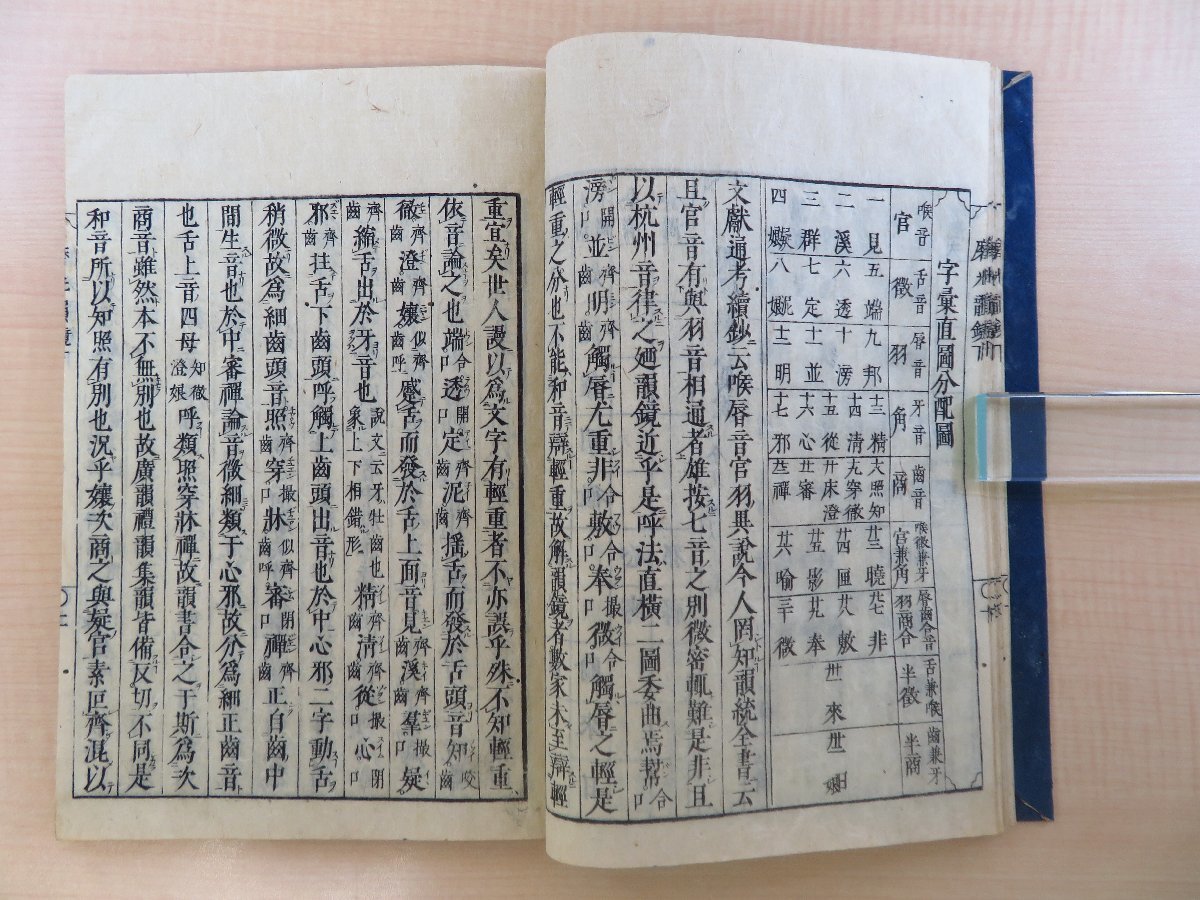 字彙直圖分配圖
喉音 舌音 唇音 牙音 齒音 喉徵兼牙 唇齒合音 舌兼喉 齒兼牙
宮 徵 羽 角 商 宮兼角 羽商合 半徵 半商
一見 五端 九邦 十三精 照知 廿三曉 非
二溪 六透 十滂 十四清 穿徹 廿四匣 廿八敷 來
三群 七定 十一並 十五從 牀澄 廿五影 廿九奉
四 八 十二明 十六心 審 廿六喻 三十微
十七邪 禪
文獻通考續鈔云喉唇音宮羽具說今人罔知韻統全書云
且宮音有與羽音相通者雄按七音之別微密輒難是非且
以杭州音律之廼韻鏡近乎是呼法直橫二圖委曲焉幫合口
滂開口並齊齒明齊齒觸唇尤重非合口敷合口奉撮口微合口觸唇之輕是
輕重之分也不能和音辯輕重故解韻鏡者數家未至辯輕
重宜矣世人謾以為文字有輕重者不亦誤乎殊不知輕重
依音論之也端合口透開口定齊齒泥齊齒搖舌而發於舌頭音知咬齒
徹齊齒澄齊齒孃似齊齒呼蹙舌而發於舌上面音見齊齒溪齊齒羣撮口疑
齊齒縮舌出於牙音也說文云牙牡齒也象上下相錯形精齊齒清齊齒從撮口心閉口
邪齊齒拄舌下齒頭呼觸上齒頭出音也於中心邪二字動舌
稍微故為細齒頭音照齊齒穿撮口牀似齊齒呼審閉口禪齊齒正自齒中
間生音也於中審禪論音微細類于心邪故分為細正齒音
也舌上音四母知徹澄娘呼類照穿牀禪故韻書合之于斯為次
商音雖然本不無別也故廣韻禮韻集韻皆備反切不同是
和音所以知照有別也況乎孃次商之與疑宮素叵齊混以